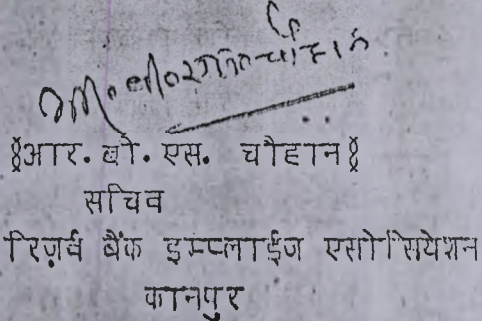 आर. बी. एस. चौहान
सचिव
रिज़र्व बैंक इम्पलाईज एसोसियेशन
कानपुर